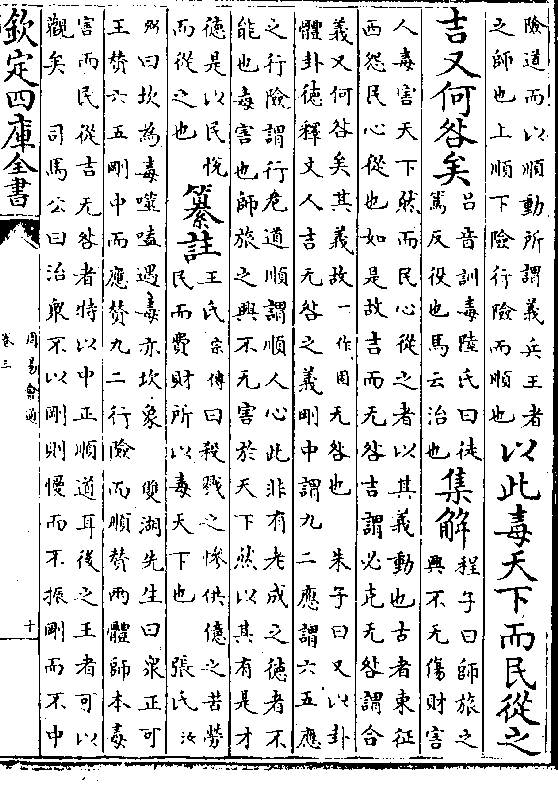 險道而以順動所謂義兵王者
之師也上順下險行險而順也
以此毒天下而民從之
吉又何咎矣
呂音訓毒陸氏曰徒
篤反役也馬云治也
集解
程子曰師旅之
興不无傷財害
人毒害天下然而民心從之者以其義動也古者東征
西怨民心從也如是故吉而无咎吉謂必克无咎謂合
義又何咎矣其義故一作固无咎也 朱子曰又以卦
體卦德釋丈人吉无咎之義剛中謂九二應謂六五應
之行險謂行危道順謂順人心此非有老成之德者不
能也毒害也師旅之興不无害於天下然以其有是才
德是以民悅
而從之也
纂註
王氏宗傳曰殺戮之慘供億之苦勞
民而費財所以毒天下也 張氏汝
弼曰坎為毒噬嗑遇毒亦坎象 雙湖先生曰衆正可
王賛六五剛中而應賛九二行險而順賛兩體師本毒
害而民從吉无咎者特以中正順道耳後之王者可以
觀矣 司馬公曰治衆不以剛則慢而不振剛而不中
欽定四庫全書
周易會通
卷三
十